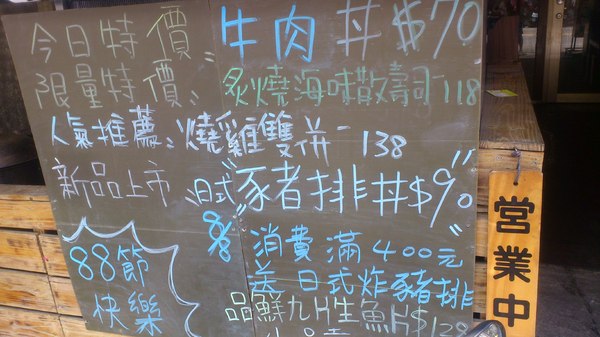 今日特價 牛肉丼 $70
限量特價 炙燒海味散壽司 118
人氣推薦 燒雞雙併 138
新品上市 日式豬排丼 $90
8/8 消費滿400元
送日式炸豬排
88節
快樂
品鮮九片生魚片 $129
營業中